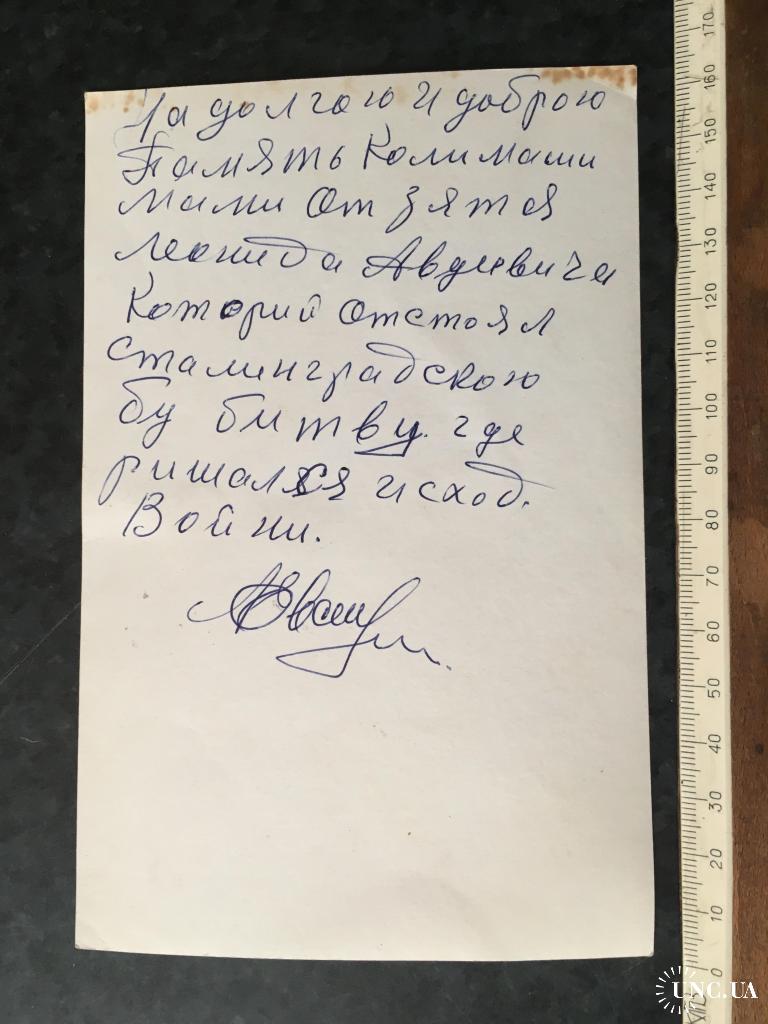 На долгою и доброю
Память Коли Маши
Мами от зятя
Леонида Авдиевича
Которий отстоял
Сталинградскою
бу битву. где
ришался исход.
Войни.
170
160
150
140
130
120
110
100
90
80
70
60
50
40
30
20
10
0
UNC.UA